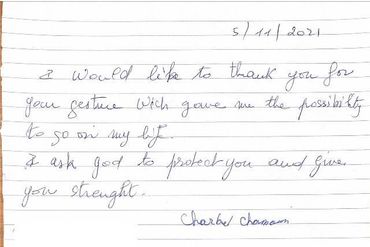 5/11/2021
I would like to thank you for
your gesture wich gave me the possibility
to go on my life.
I ask god to protect you and give
you strenght.
Charbel